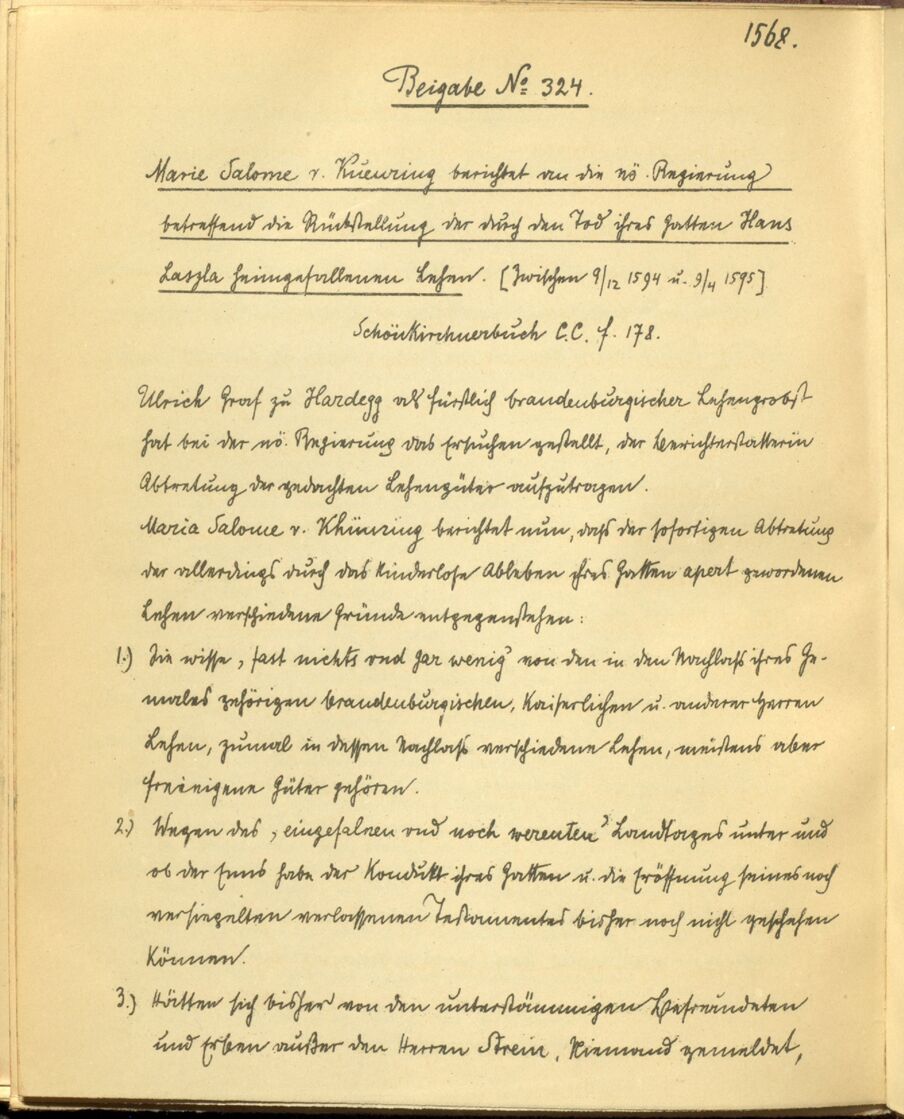 1568.
Beigabe No 324.
Marie Salome v. Kuenring berichtet an die nö. Regierung
betreffend die Rückstellung der durch den Tod ihres Gatten Hans
Laszla heimgefallenen Lehen. [Zwischen 9/12 1594 u. 9/4 1595]
Schönkirchnerbuch C.C. f. 178.
Ulrich Graf zu Hardegg als fürstlich brandenburgischer Lehenprobst
hat bei der nö. Regierung das Ersuchen gestellt, der Berichterstatterin
Abtretung der gedachten Lehengüter aufzutragen.
Maria Salome v. Khünring berichtet nun, dass der sofortigen Abtretung
der allerdings durch das kinderlose Ableben ihres Gatten apert gewordenen
Lehen verschiedene Gründe entgegenstehen:
1.) Sie wisse, „fast nichts vnd gar wenig“ von den in den Nachlass ihres Ge-
males gehörigen brandenburgischen, kaiserlichen u. anderer Herren
Lehen, zumal in dessen Nachlass verschiedene Lehen, meistens aber
freieigene Güter gehören.
2.) Wegen des „eingefalnen vnd noch werenten“ Landtages unter und
ob der Enns habe der Kondukt ihres Gatten u. die Eröffnung seines noch
versiegelten verlassenen Testamentes bisher noch nicht geschehen
können.
3.) Hätten sich bisher von den unterstämmigen Befreundeten
und Erben außer den Herren Strein, Niemand gemeldet,